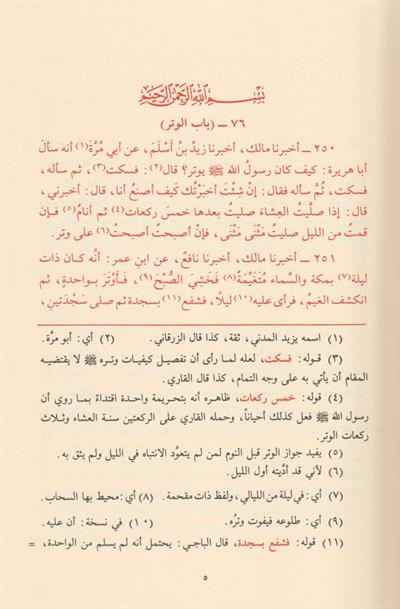 بسم الله الرحمن الرحيم
٧٦ ــ (باب الوتر)
٢٥٠ ــ أخبرنا مالك، أخبرنا زيدُ بنُ أَسْلَمَ، عن أبي مُرَّةَ(١) أنه سألَ
أبا هريرة: كيف كان رسولُ الله ﷺ يوتر؟ قال(٢): فسكت(٣)، ثم سأله،
فسكت، ثُمَّ سأله فقال: إن شِئْتَ أخبَرْتُكَ كَيف أصنعُ أنا، قال: أخبرني،
قال: إذا صلَّيتُ العِشاءَ صليتُ بعدها خمسَ ركعات(٤) ثم أنامُ(٥) فـإن
قمتُ من الليل صليتُ مَثْنَى مَثْنَى، فإنْ أصبحتُ أصبحتُ(٦) على وتر.
٢٥١ ــ أخبرنا مالك، أخبرنا نافعٌ، عن ابن عمر: أنَّه كان ذات
ليلة(٧) بمكة والسَّماء مُتَغَيِّمَةٌ(٨) فَخَشِيَ الصُّبْحَ(٩)، فَأَوْتَرَ بـواحدةٍ، ثم
انكشف الغيمُ، فرأى عليه(١٠) ليلًا، فشفع(١١) بسجدة ثم صلى سَجْدَتين،
(١) اسمه يزيد المدني، ثقة، كذا قال الزرقاني. (٢) أي: أبو مرَّة.
(٣) قـوله: فسكت، لعله لما رأى أن تفصيل كيفيات وتره ﷺ لا يقتضيه
المقام أن يأتي به على وجه التمام، كذا قال القاري.
(٤) قوله: خمس ركعات، ظاهره أنه بتحريمة واحدة اقتداءً بمـا روي أن
رسول الله ﷺ فعل كذلك أحياناً، وحمله القاري على الركعتين سنة العشاء وثـلاث
ركعات الوتر.
(٥) يفيد جواز الوتر قبل النوم لمن لم يتعوَّد الانتباه في الليل ولم يثق به.
(٦) لأني قد أدَّيته أول الليل.
(٧) أي: في ليلة من الليالي، ولفظ ذات مقحمة. (٨) أي: محيط بها السحاب.
(٩) أي: طلوعه فيفوت وترُه. (١٠) في نسخة: أن عليه.
(١١) قوله: فشفع بسجدة، قال الباجي: يحتمل أنه لم يسلم من الواحدة، =
٥